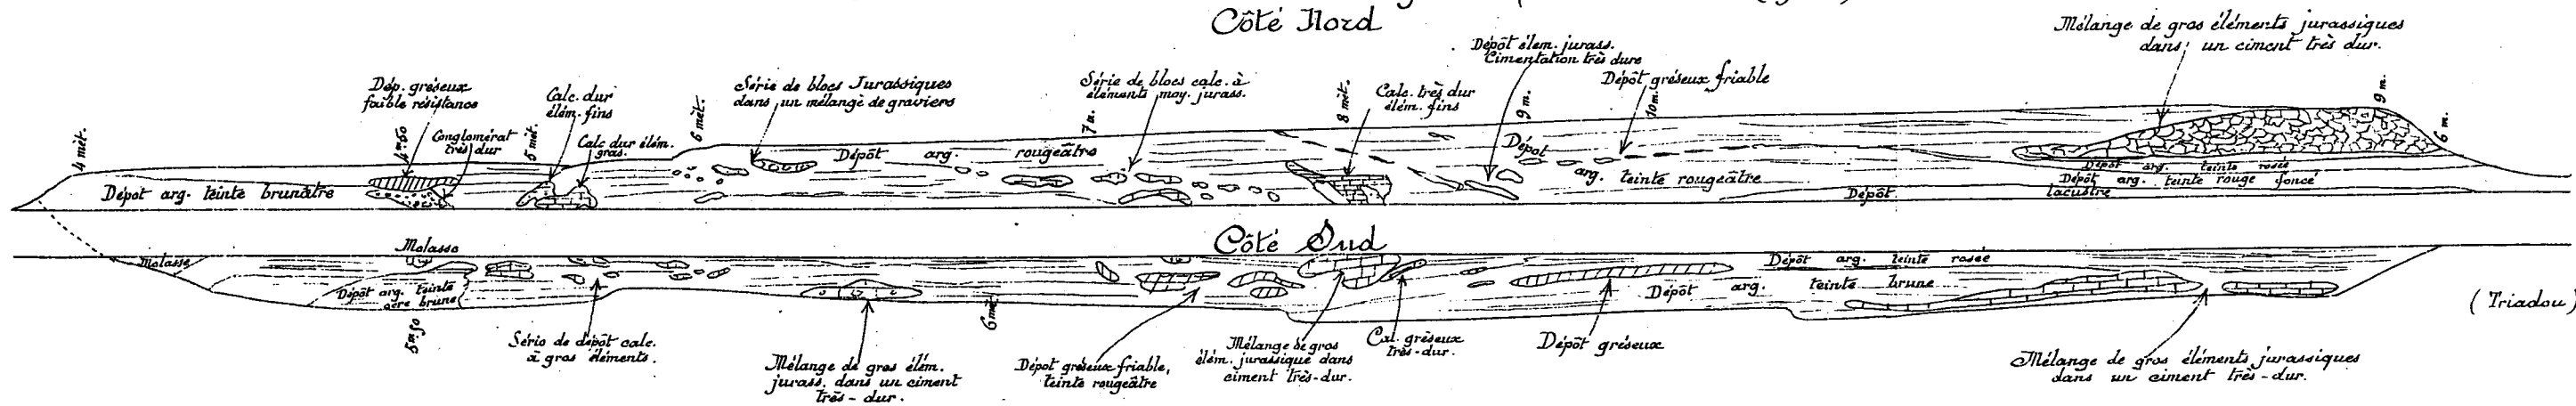 Côté Nord
Mélange de gros éléments jurassiques
dans un ciment très dur.
Dépôt élem. jurass.
Cimentation très dure
Dép. gréseux
faible résistance
Calc. dur
élém. fins
Série de blocs Jurassiques
dans un mélange de graviers
Série de blocs calc. à
éléments moy. jurass.
Calc. très dur
élem. fins
Dépôt gréseux friable
4 mèt.
4m50
Conglomérat
très dur
5 mèt.
Calc dur élém.
gros.
6 mèt.
7 m.
8 mèt.
9 m.
10m.
9 m.
6 m.
Dépôt arg. rougeâtre
Dépôt
arg. teinte rougeâtre
Dépôt arg. teinte rosée
Dépôt arg. teinte rouge foncé
Dépôt lacustre
Dépôt arg. teinte brunâtre
Côté Sud
Molasse
Molasse
Dépôt arg. teinte
ocre brune
Dépôt arg. teinte rosée
Dépôt arg. teinte brune
(Triadou)
5m50
6 mèt.
Série de dépôt calc.
à gros éléments.
Mélange de gros élém.
jurass. dans un ciment
très-dur.
Dépot gréseux friable,
teinte rougeâtre
Mélange de gros
élém. jurassique dans
ciment très-dur.
Cal. gréseux
très-dur.
Dépôt gréseux
Mélange de gros éléments jurassiques
dans un ciment très-dur.